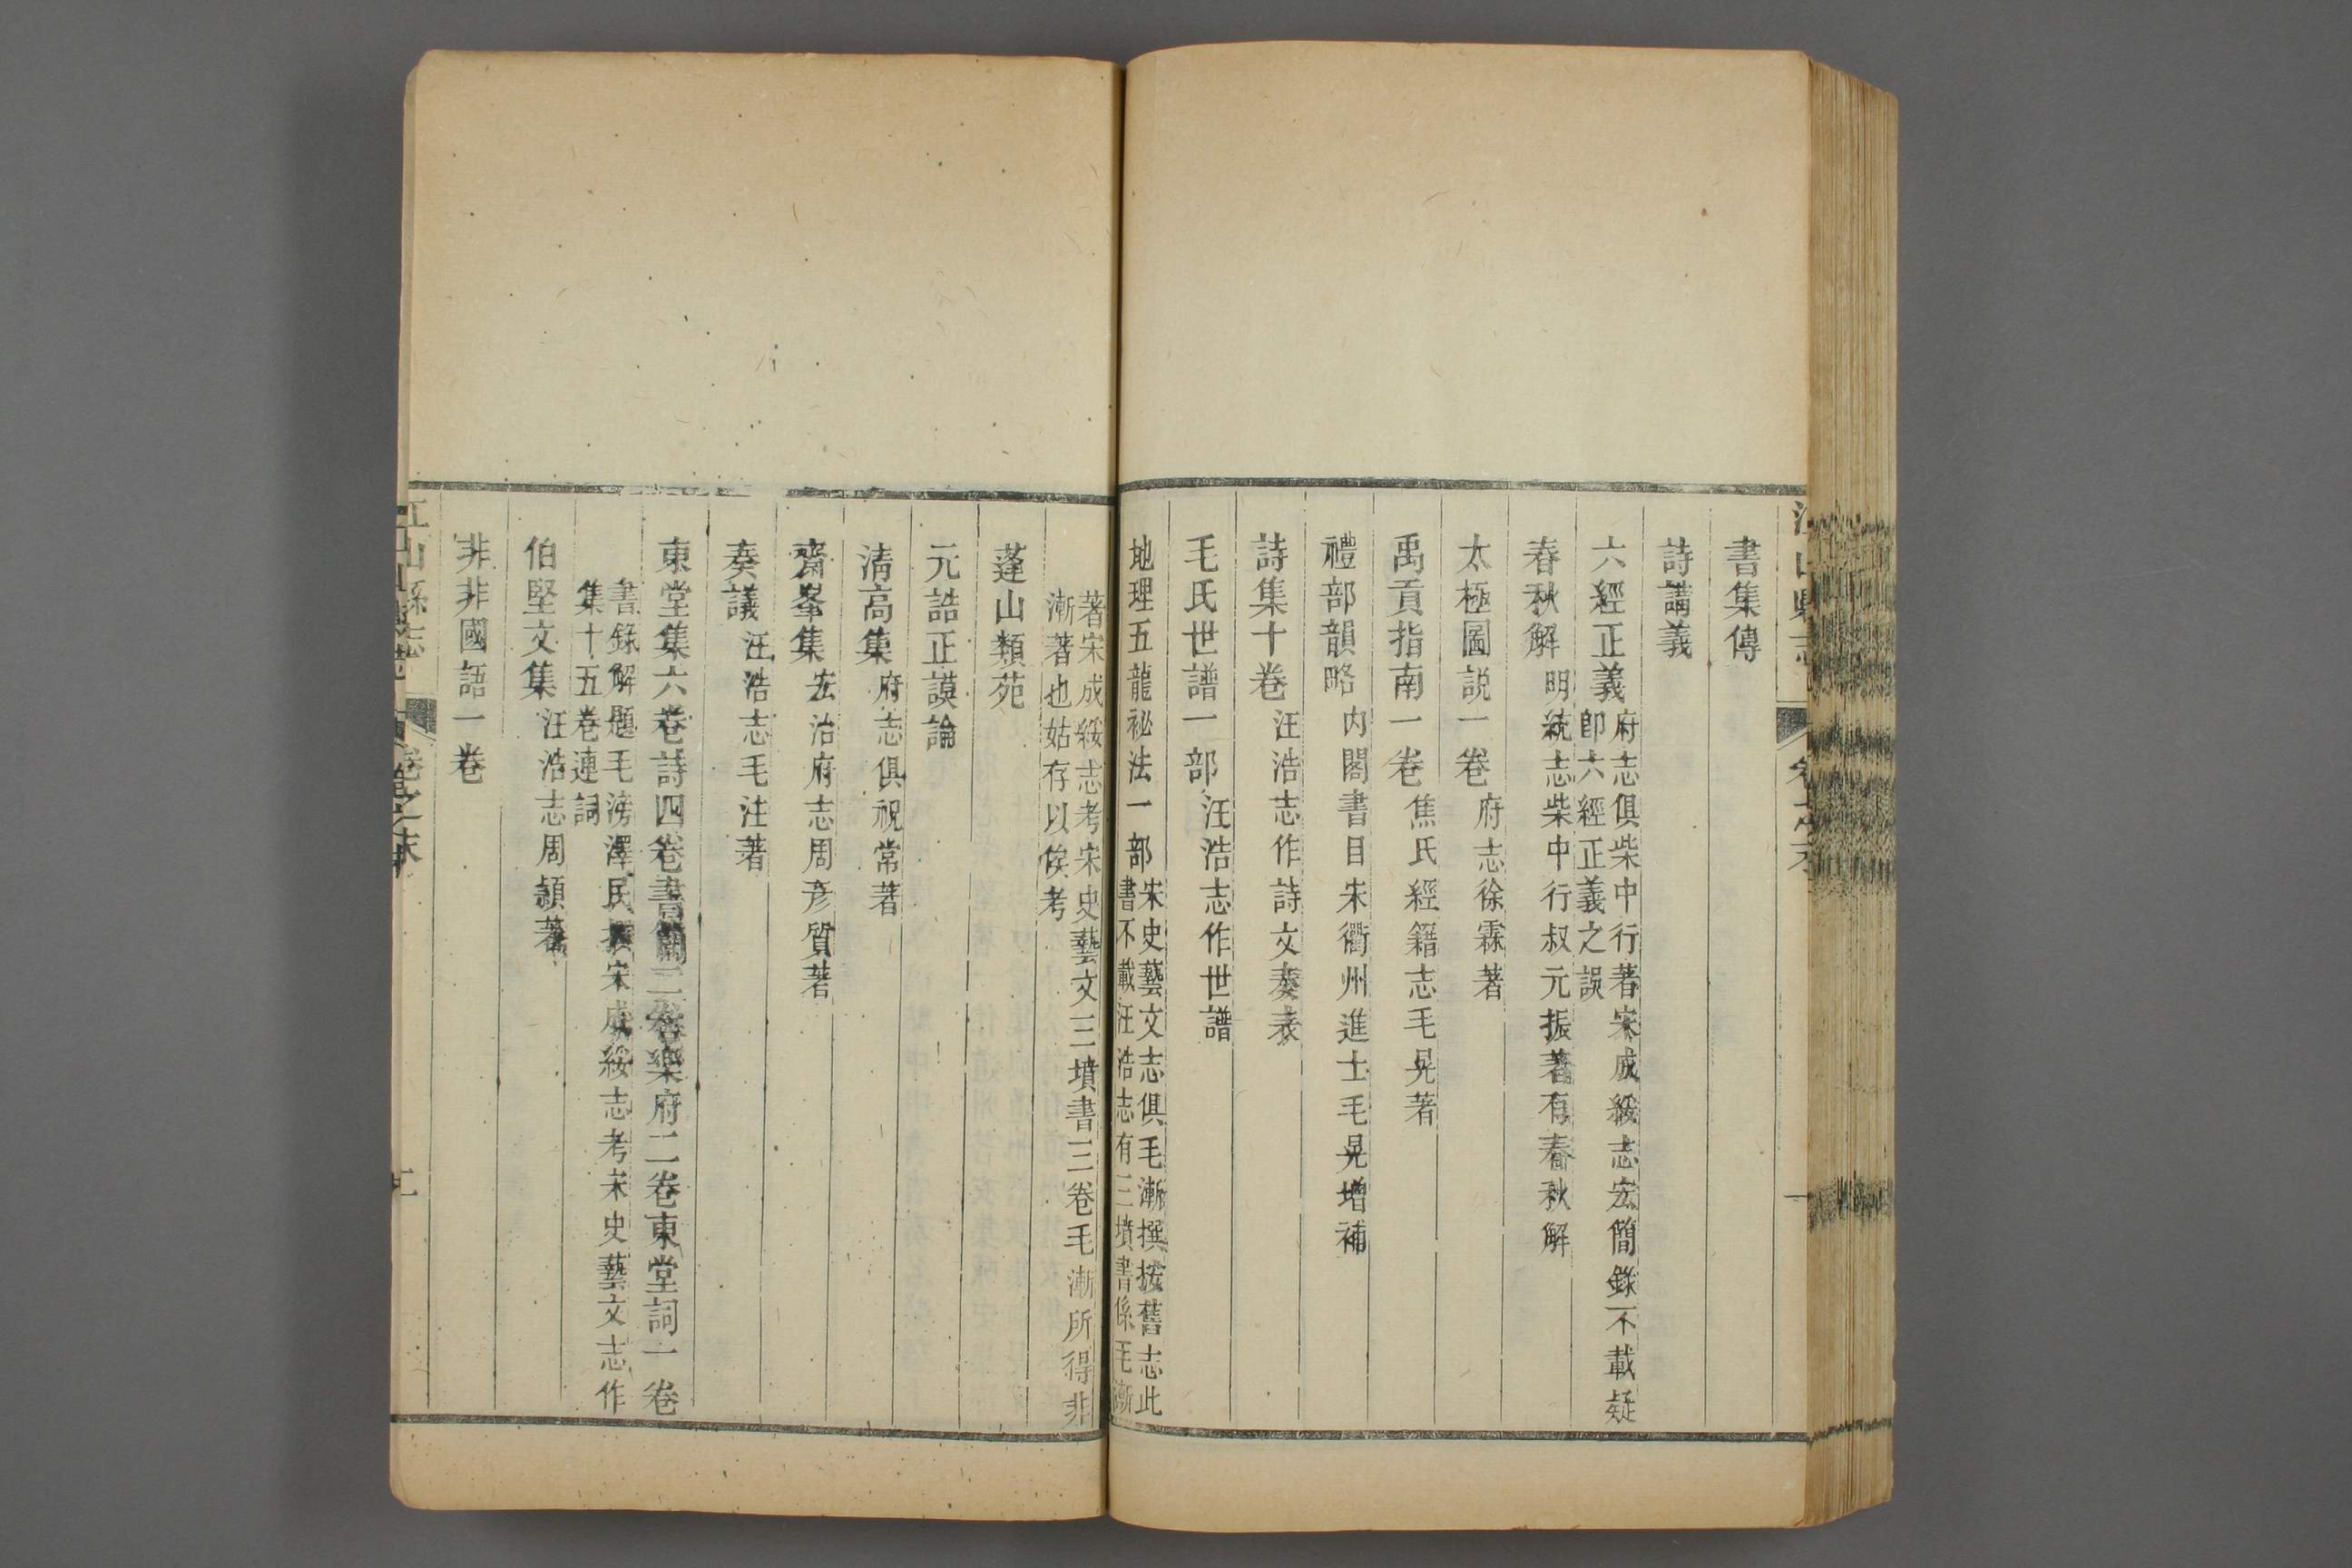 書集傳
詩講義
六經正義府志俱柴中行著宋成綏志宏簡錄不載疑
卽六經正義之誤
春秋解明統志柴中行叔元振著有春秋解
太極圖説一卷府志徐霖著
禹貢指南一卷焦氏經籍志毛晃著
禮部韻略内閣書目朱衢州進士毛晃增補
詩集十卷汪浩志作詩文奏表
毛氏世譜一部汪浩志作世譜
地理五龍祕法一部宋史藝文志俱毛漸撰按舊志此
書不載汪浩志有三墳書係毛漸
著宋成綏志考宋史藝文三墳書三卷毛漸所得非
漸著也姑存以俟考
蓬山類苑
元誥正謨論
淸高集府志俱祝常著
齋峯集宏治府志周彥質著
奏議汪浩志毛注著
東堂集六卷詩四卷書簡二卷樂府二卷東堂詞一卷
書錄解題毛滂澤民撰宋成綏志考宋史藝文志作
集十五卷連詞
伯堅文集汪浩志周頴著
非非國語一卷
江山縣志